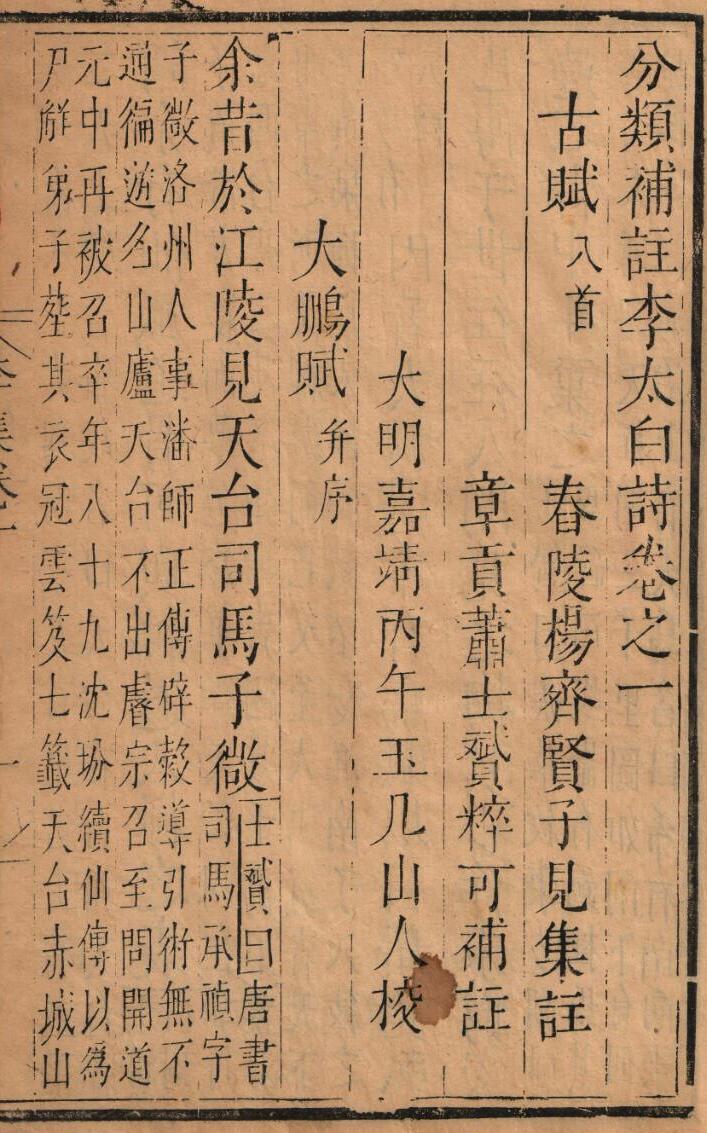 分類補註李太白詩卷之一
古賦八首
舂陵楊齊賢子見集註
章貢蕭士贇粹可補註
大明嘉靖丙午玉几山人校
大鵬賦并序
余昔於江陵見天台司馬子微士贇曰唐書
司馬承禎字
子微洛州人事潘師正傳辟糓導引術無不
通徧遊名山廬天台不出睿宗召至問開道
元中再被召卒年八十九沈玢續仙傳以為
尸解弟子塟其衣冠雲笈七籤天台赤城山